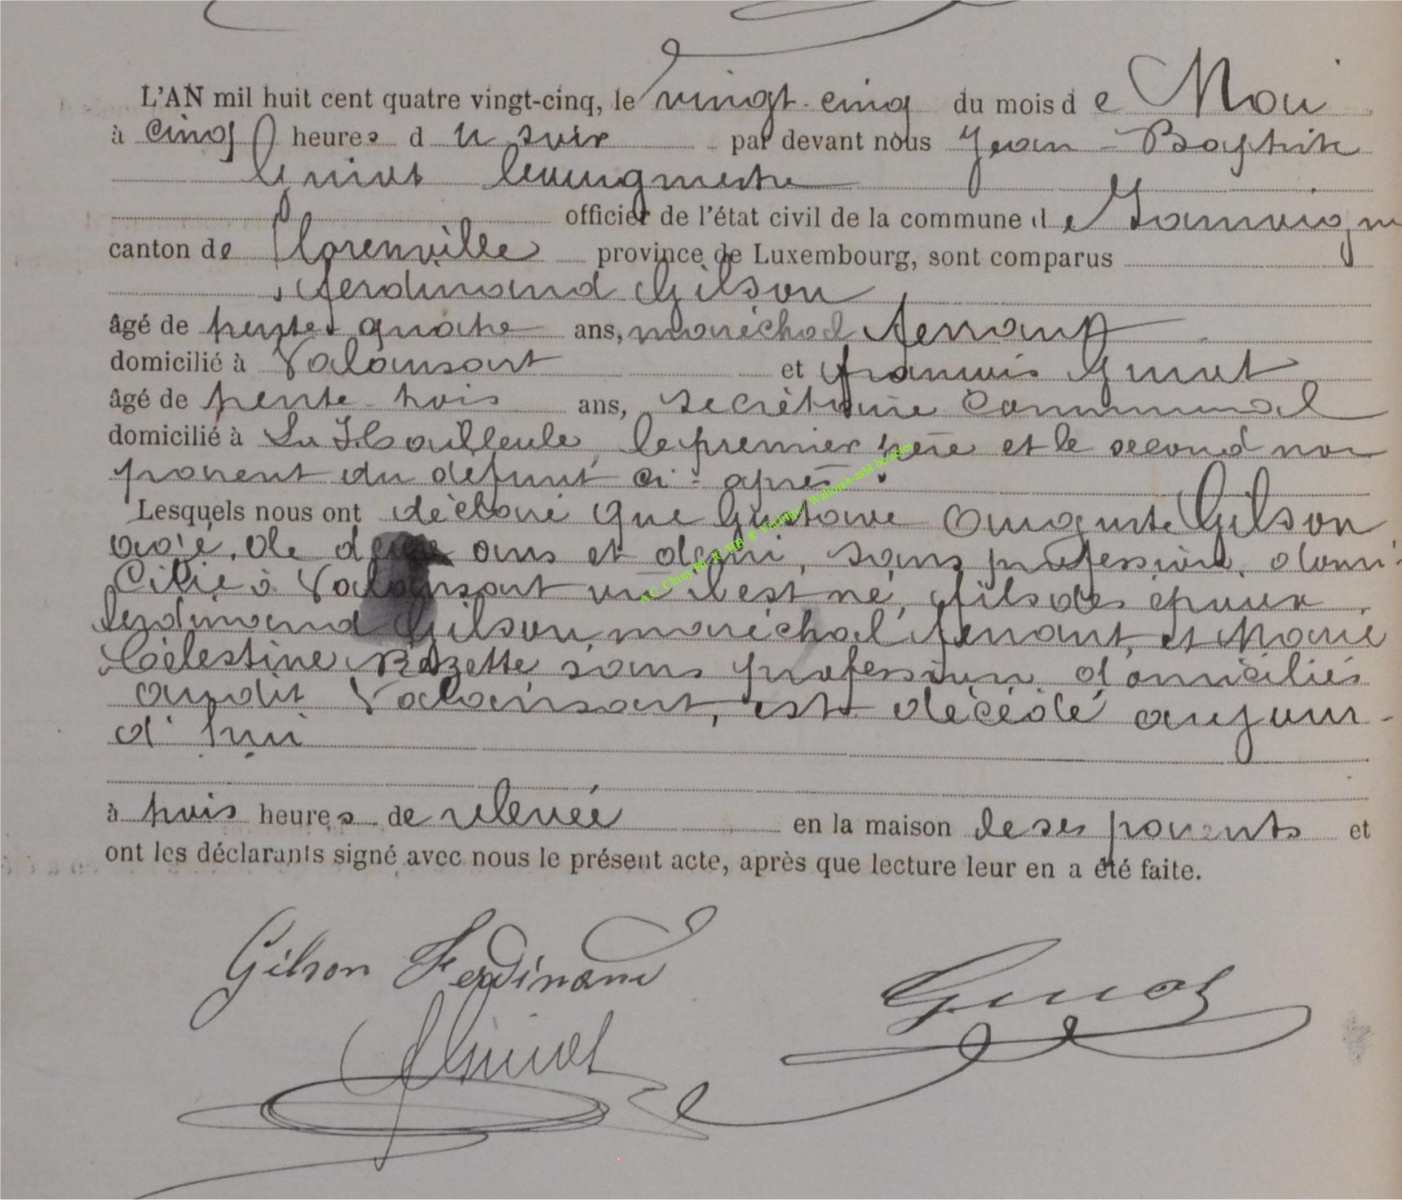 L'AN mil huit cent quatre vingt-cinq, le vingt-cinq du mois de Mai
à cinq heures du soir par devant nous Jean-Baptiste
bourgmestre
officier de l'état civil de la commune de Jamoigne
canton de Florenville province de Luxembourg, sont comparus
Ferdinand Gilson
âgé de trente quatre ans, maréchal ferrant
domicilié à Valansart et François
âgé de trente-trois ans, secrétaire Communal
domicilié à La Houlleule, le premier père et le second non
parent du défunt ci-après
Lesquels nous ont déclaré que Gustave Auguste Gilson
âgé de ans et demi, sans profession, domi-
cilié à Valansart où il est né, fils des époux
Ferdinand Gilson maréchal ferrant, et Marie
Célestine Rozette sans profession domiciliés
audit Valansart, est décédé aujour-
d'hui
à trois heures de relevée en la maison de ses parents et
ont les déclarants signé avec nous le présent acte, après que lecture leur en a été faite.
Gilson Ferdinand